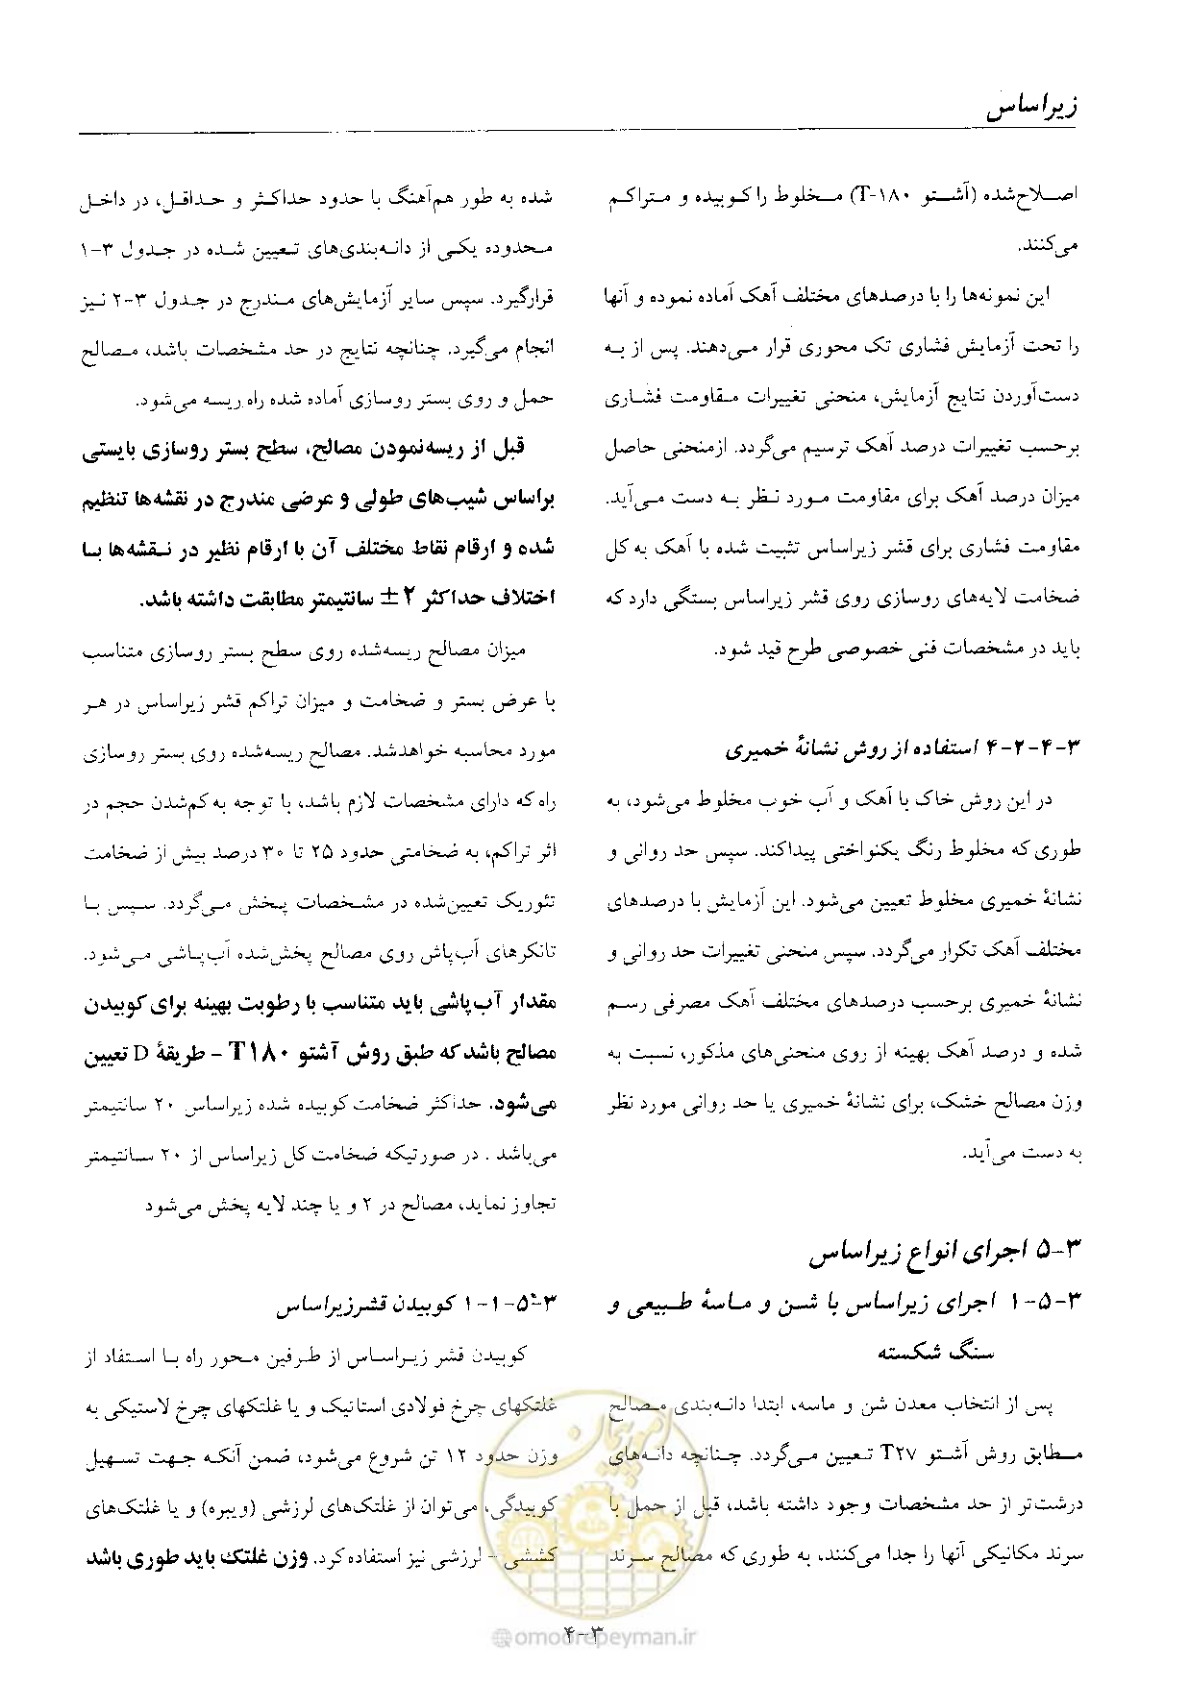 زیراساس
اصلاح‌شده (آشتو T-۱۸۰) مخلوط را کوبیده و متراکم
می‌کنند.
این نمونه‌ها را با درصدهای مختلف آهک آماده نموده و آنها
را تحت آزمایش فشاری تک محوری قرار می‌دهند. پس از به
دست‌آوردن نتایج آزمایش، منحنی تغییرات مقاومت فشاری
برحسب تغییرات درصد آهک ترسیم می‌گردد. ازمنحنی حاصل
میزان درصد آهک برای مقاومت مورد نظر به دست می‌آید.
مقاومت فشاری برای قشر زیراساس تثبیت شده با آهک به کل
ضخامت لایه‌های روسازی روی قشر زیراساس بستگی دارد که
باید در مشخصات فنی خصوصی طرح قید شود.
۳-۴-۲-۴ استفاده از روش نشانهٔ خمیری
در این روش خاک با آهک و آب خوب مخلوط می‌شود، به
طوری که مخلوط رنگ یکنواختی پیداکند. سپس حد روانی و
نشانهٔ خمیری مخلوط تعیین می‌شود. این آزمایش با درصدهای
مختلف آهک تکرار می‌گردد. سپس منحنی تغییرات حد روانی و
نشانهٔ خمیری برحسب درصدهای مختلف آهک مصرفی رسم
شده و درصد آهک بهینه از روی منحنی‌های مذکور، نسبت به
وزن مصالح خشک، برای نشانهٔ خمیری یا حد روانی مورد نظر
به دست می‌آید.
۳-۵ اجرای انواع زیراساس
۳-۵-۱ اجرای زیراساس با شن و ماسهٔ طبیعی و
سنگ شکسته
پس از انتخاب معدن شن و ماسه، ابتدا دانه‌بندی مصالح
مطابق روش آشتو T۲۷ تعیین می‌گردد. چنانچه دانه‌های
درشت‌تر از حد مشخصات وجود داشته باشد، قبل از حمل با
سرند مکانیکی آنها را جدا می‌کنند، به طوری که مصالح سرند
شده به طور هم‌آهنگ با حدود حداکثر و حداقل، در داخل
محدوده یکی از دانه‌بندی‌های تعیین شده در جدول ۳-۱
قرارگیرد. سپس سایر آزمایش‌های مندرج در جدول ۳-۲ نیز
انجام می‌گیرد. چنانچه نتایج در حد مشخصات باشد، مصالح
حمل و روی بستر روسازی آماده شده راه ریسه می‌شود.
قبل از ریسه‌نمودن مصالح، سطح بستر روسازی بایستی
براساس شیب‌های طولی و عرضی مندرج در نقشه‌ها تنظیم
شده و ارقام نقاط مختلف آن با ارقام نظیر در نقشه‌ها با
اختلاف حداکثر ۲± سانتیمتر مطابقت داشته باشد.
میزان مصالح ریسه‌شده روی سطح بستر روسازی متناسب
با عرض بستر و ضخامت و میزان تراکم قشر زیراساس در هر
مورد محاسبه خواهدشد. مصالح ریسه‌شده روی بستر روسازی
راه که دارای مشخصات لازم باشد، با توجه به کم‌شدن حجم در
اثر تراکم، به ضخامتی حدود ۲۵ تا ۳۰ درصد بیش از ضخامت
تئوریک تعیین‌شده در مشخصات پخش می‌گردد. سپس با
تانکرهای آب‌پاش روی مصالح پخش‌شده آب‌پاشی می‌شود.
مقدار آب‌پاشی باید متناسب با رطوبت بهینه برای کوبیدن
مصالح باشد که طبق روش آشتو T۱۸۰ - طریقهٔ D تعیین
می‌شود. حداکثر ضخامت کوبیده شده زیراساس ۲۰ سانتیمتر
می‌باشد . در صورتیکه ضخامت کل زیراساس از ۲۰ سانتیمتر
تجاوز نماید، مصالح در ۲ و یا چند لایه پخش می‌شود
۳-۵-۱-۱ کوبیدن قشرزیراساس
کوبیدن قشر زیراساس از طرفین محور راه با استفاد از
غلتکهای چرخ فولادی استاتیک و یا غلتکهای چرخ لاستیکی به
وزن حدود ۱۲ تن شروع می‌شود، ضمن آنکه جهت تسهیل
کوبیدگی، می‌توان از غلتک‌های لرزشی (ویبره) و یا غلتک‌های
کششی - لرزشی نیز استفاده کرد. وزن غلتک باید طوری باشد
امور پیمان
۳-۴
@omoorepeyman.ir